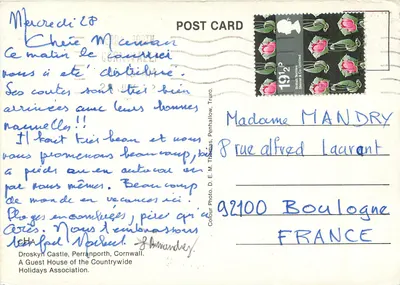 POST CARD
Mercredi 28
Chère Maman
Ce matin le courrier
nous a été distribué.
Ses contes sont très bien
arrivées avec leurs bonnes
nouvelles!!
Il fait très beau et nous
nous promenons beaucoup, soit
à pieds ou en autocar ou
par nous mêmes. Beaucoup
de monde en vacances ici.
Plages encombrées, pires qu'à
Nous t'embrassons
très fort
Droskyn Castle, Perranporth, Cornwall.
A Guest House of the Countrywide
Holidays Association.
Colour Photo. D. E. M. Thomas, Perranarworthal, Truro.
19½P
Madame MANDRY
8 rue alfred Laurant
92100 Boulogne
FRANCE